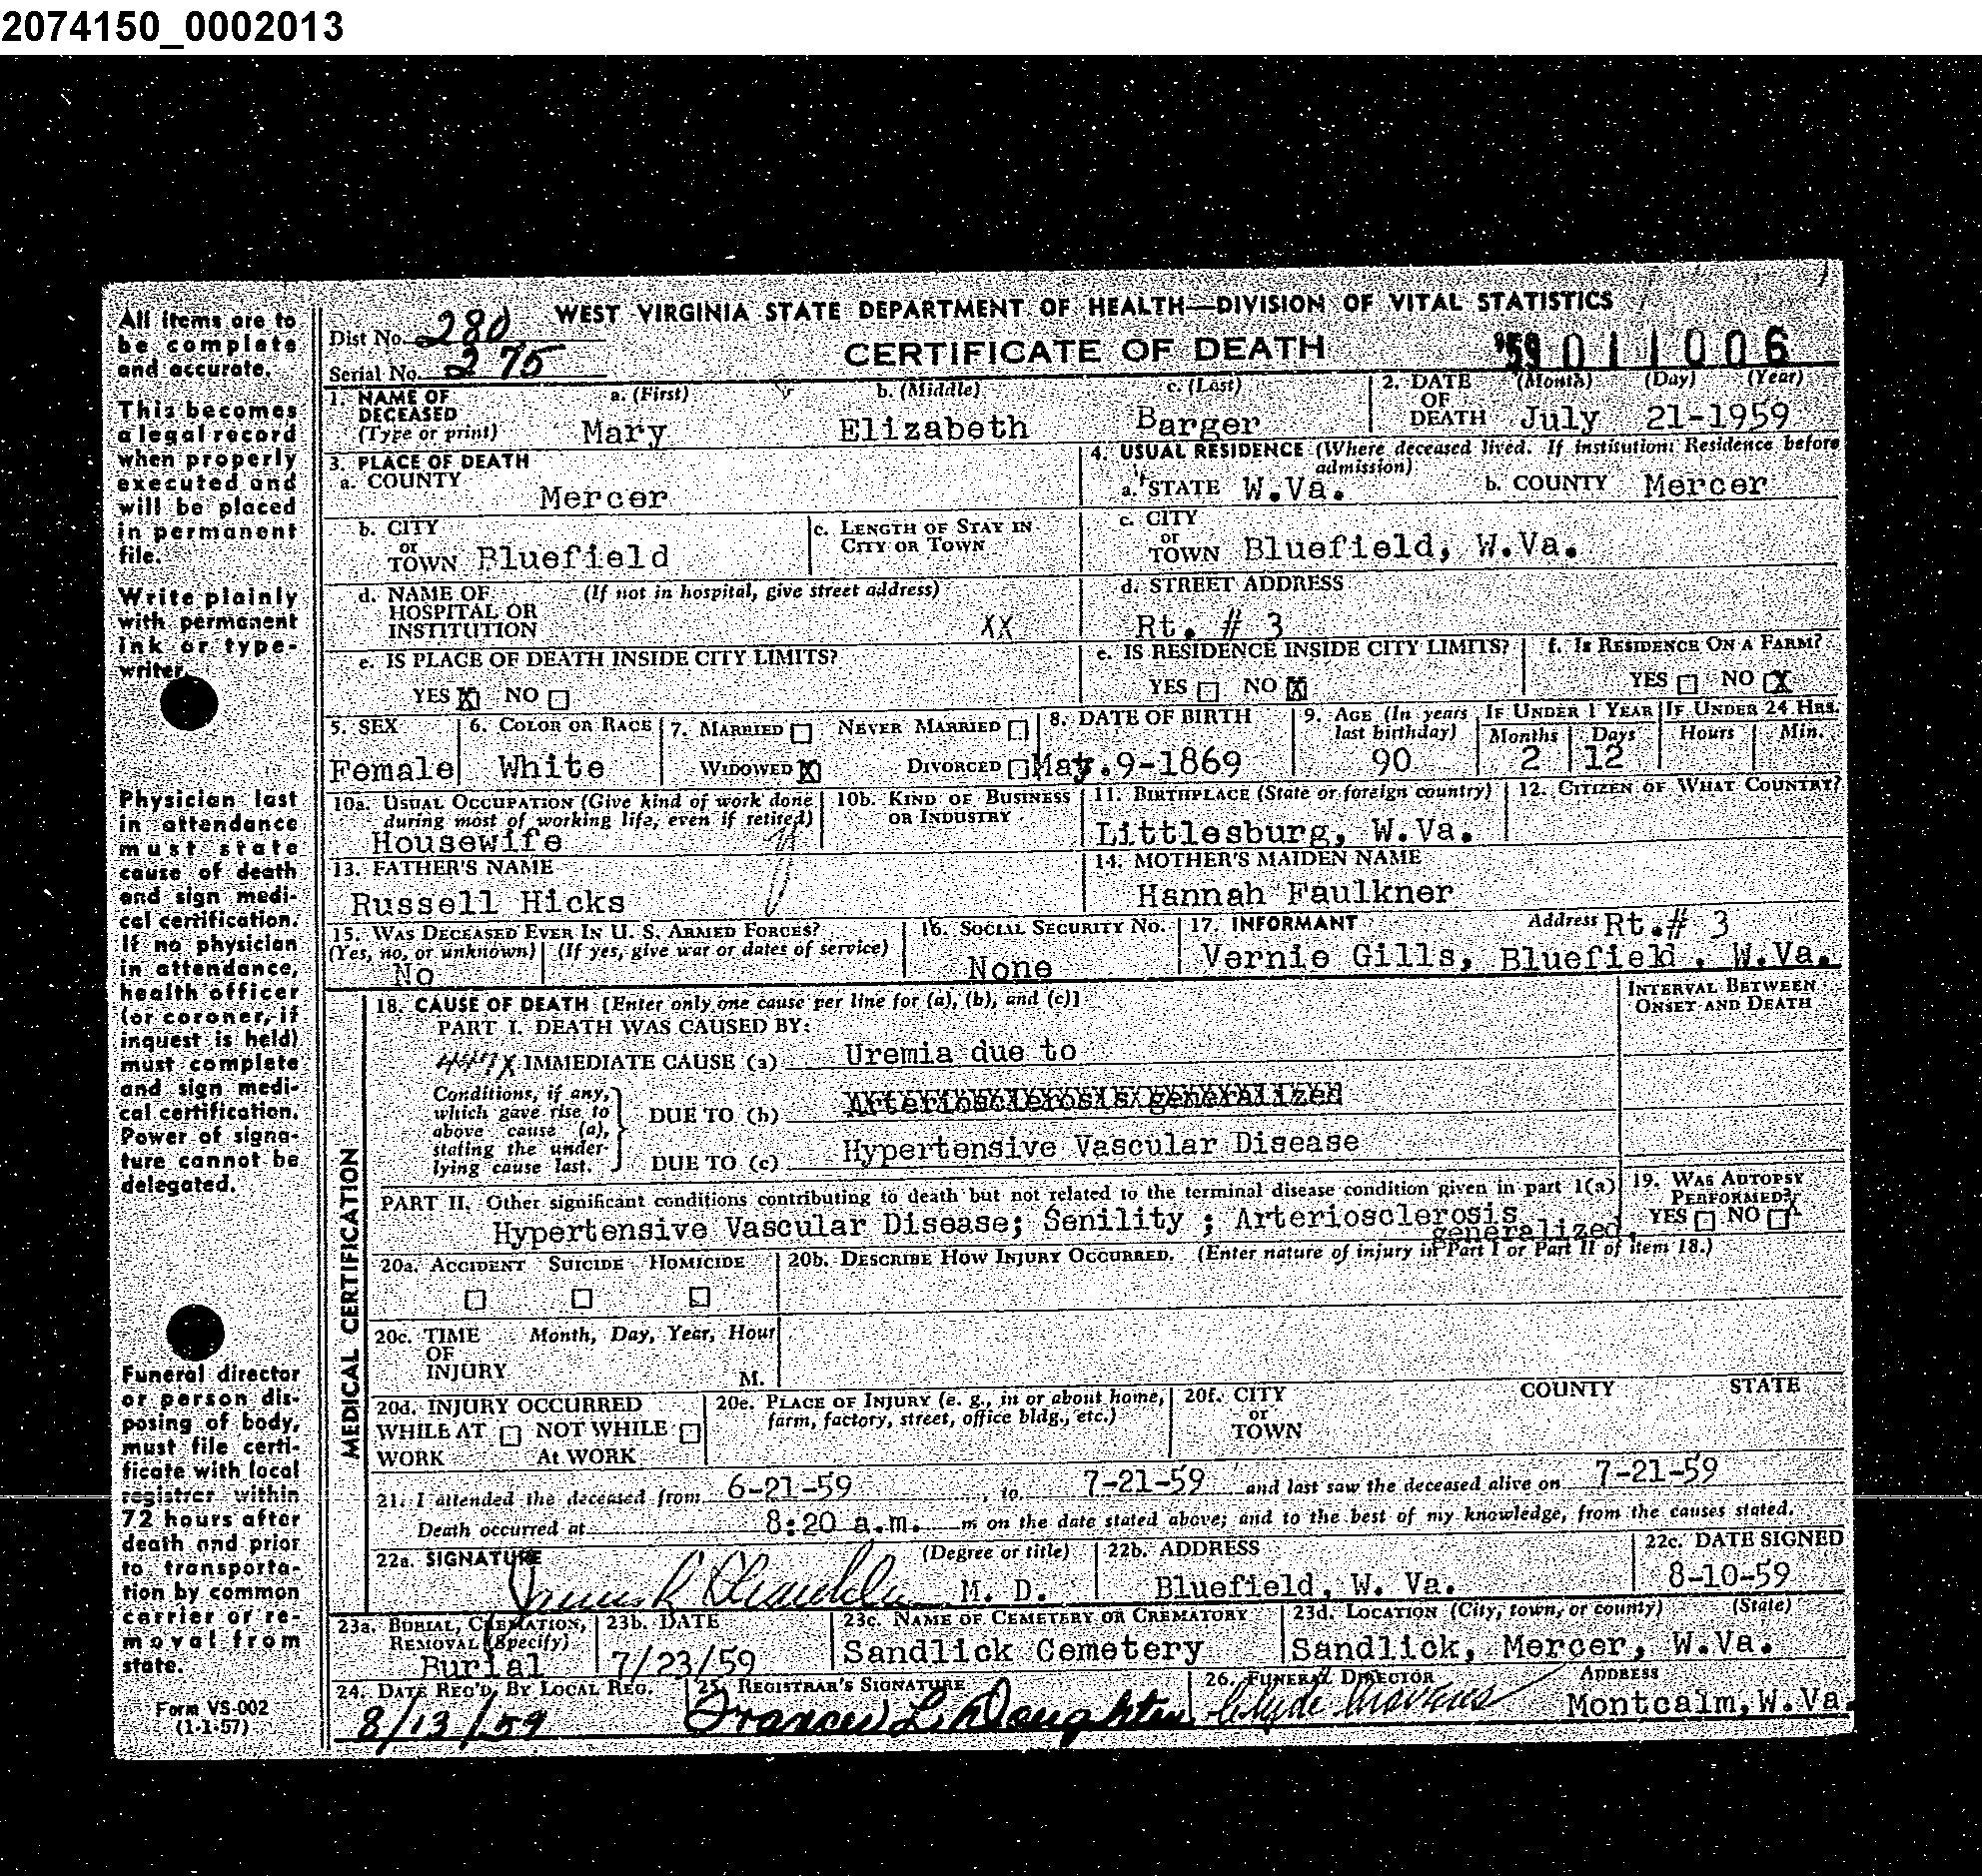 2074150_0002013
All items are to
be complete
and accurate.
This becomes
a legal record
when properly
executed and
will be placed
in permanent
file.
Write plainly
with permanent
ink or type-
writer.
Physician last
in attendance
must state
cause of death
and sign medi-
cal certification.
If no physician
in attendance,
health officer
(or coroner, if
inquest is held)
must complete
and sign medi-
cal certification.
Power of signa-
ture cannot be
delegated.
Funeral director
or person dis-
posing of body,
must file certi-
ficate with local
registrar within
72 hours after
death and prior
to transporta-
tion by common
carrier or re-
moval from
state.
Form VS-002
(1-1-57)
WEST VIRGINIA STATE DEPARTMENT OF HEALTH—DIVISION OF VITAL STATISTICS
Dist No. 280
CERTIFICATE OF DEATH '59 011006
Serial No. 275
1. NAME OF DECEASED (Type or print) a. (First) b. (Middle) c. (Last)
Mary Elizabeth Barger
2. DATE OF DEATH (Month) (Day) (Year)
July 21-1959
3. PLACE OF DEATH
a. COUNTY Mercer
4. USUAL RESIDENCE (Where deceased lived. If institution: Residence before admission)
a. STATE W.Va. b. COUNTY Mercer
b. CITY or TOWN Bluefield
c. LENGTH OF STAY IN CITY OR TOWN
c. CITY or TOWN Bluefield, W.Va.
d. NAME OF HOSPITAL OR INSTITUTION (If not in hospital, give street address) XX
d. STREET ADDRESS
Rt. # 3
e. IS PLACE OF DEATH INSIDE CITY LIMITS?
YES X NO
e. IS RESIDENCE INSIDE CITY LIMITS?
YES NO X
f. IS RESIDENCE ON A FARM?
YES NO X
5. SEX
Female
6. COLOR OR RACE
White
7. MARRIED NEVER MARRIED
WIDOWED X DIVORCED
8. DATE OF BIRTH
May. 9-1869
9. AGE (In years last birthday)
90
IF UNDER 1 YEAR
Months Days
2 12
IF UNDER 24 HRS.
Hours Min.
10a. USUAL OCCUPATION (Give kind of work done during most of working life, even if retired)
Housewife
10b. KIND OF BUSINESS OR INDUSTRY
11. BIRTHPLACE (State or foreign country)
Littlesburg, W.Va.
12. CITIZEN OF WHAT COUNTRY?
13. FATHER'S NAME
Russell Hicks
14. MOTHER'S MAIDEN NAME
Hannah Faulkner
15. WAS DECEASED EVER IN U. S. ARMED FORCES?
(Yes, no, or unknown) (If yes, give war or dates of service)
No
16. SOCIAL SECURITY NO.
None
17. INFORMANT Address Rt.# 3
Vernie Gills, Bluefield, W.Va.
MEDICAL CERTIFICATION
18. CAUSE OF DEATH [Enter only one cause per line for (a), (b), and (c)]
INTERVAL BETWEEN ONSET AND DEATH
PART I. DEATH WAS CAUSED BY:
447X IMMEDIATE CAUSE (a) Uremia due to
Conditions, if any, which gave rise to above cause (a), stating the under-lying cause last.
DUE TO (b) Arteriosclerosis generalized
DUE TO (c) Hypertensive Vascular Disease
PART II. Other significant conditions contributing to death but not related to the terminal disease condition given in part I(a)
Hypertensive Vascular Disease; Senility ; Arteriosclerosis generalized.
19. WAS AUTOPSY PERFORMED?
YES NO
20a. ACCIDENT SUICIDE HOMICIDE
20b. DESCRIBE HOW INJURY OCCURRED. (Enter nature of injury in Part I or Part II of item 18.)
20c. TIME OF INJURY Month, Day, Year, Hour
M.
20d. INJURY OCCURRED
WHILE AT WORK NOT WHILE At WORK
20e. PLACE OF INJURY (e. g., in or about home, farm, factory, street, office bldg., etc.)
20f. CITY or TOWN COUNTY STATE
21. I attended the deceased from 6-21-59, to 7-21-59 and last saw the deceased alive on 7-21-59
Death occurred at 8:20 a.m. m on the date stated above; and to the best of my knowledge, from the causes stated.
22a. SIGNATURE (Degree or title)
M. D.
22b. ADDRESS
Bluefield, W. Va.
22c. DATE SIGNED
8-10-59
23a. BURIAL, CREMATION, REMOVAL (Specify)
Burial
23b. DATE
7/23/59
23c. NAME OF CEMETERY OR CREMATORY
Sandlick Cemetery
23d. LOCATION (City, town, or county) (State)
Sandlick, Mercer, W.Va.
24. DATE REC'D. BY LOCAL REG.
8/13/59
25. REGISTRAR'S SIGNATURE
Frances L. Daughten
26. FUNERAL DIRECTOR ADDRESS
Clyde Montcalm, W.Va.